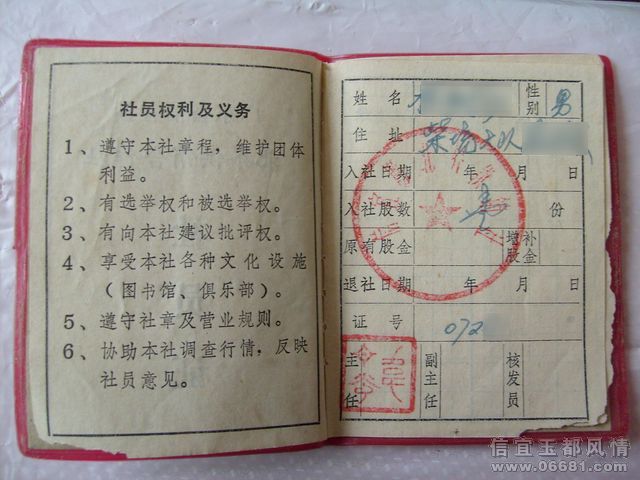 社员权利及义务
1、遵守本社章程，维护团体
利益。
2、有选举权和被选举权。
3、有向本社建议批评权。
4、享受本社各种文化设施
（图书馆、俱乐部）。
5、遵守社章及营业规则。
6、协助本社调查行情，反映
社员意见。
姓名 性别 男
住址 大队
入社日期 年 月 日
入社股数 份
原有股金 增补股金
退社日期 年 月 日
证号 072
主任 副主任 核发员
信宜玉都风情
www.06681.com